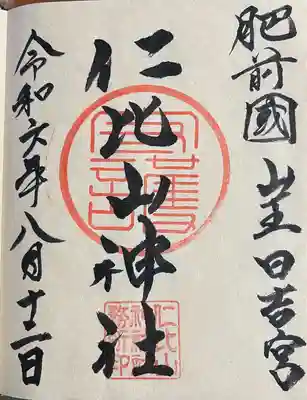 肥前國 山王日吉宮
仁比山神社
令和六年八月十二日
仁比山
神社
務所印